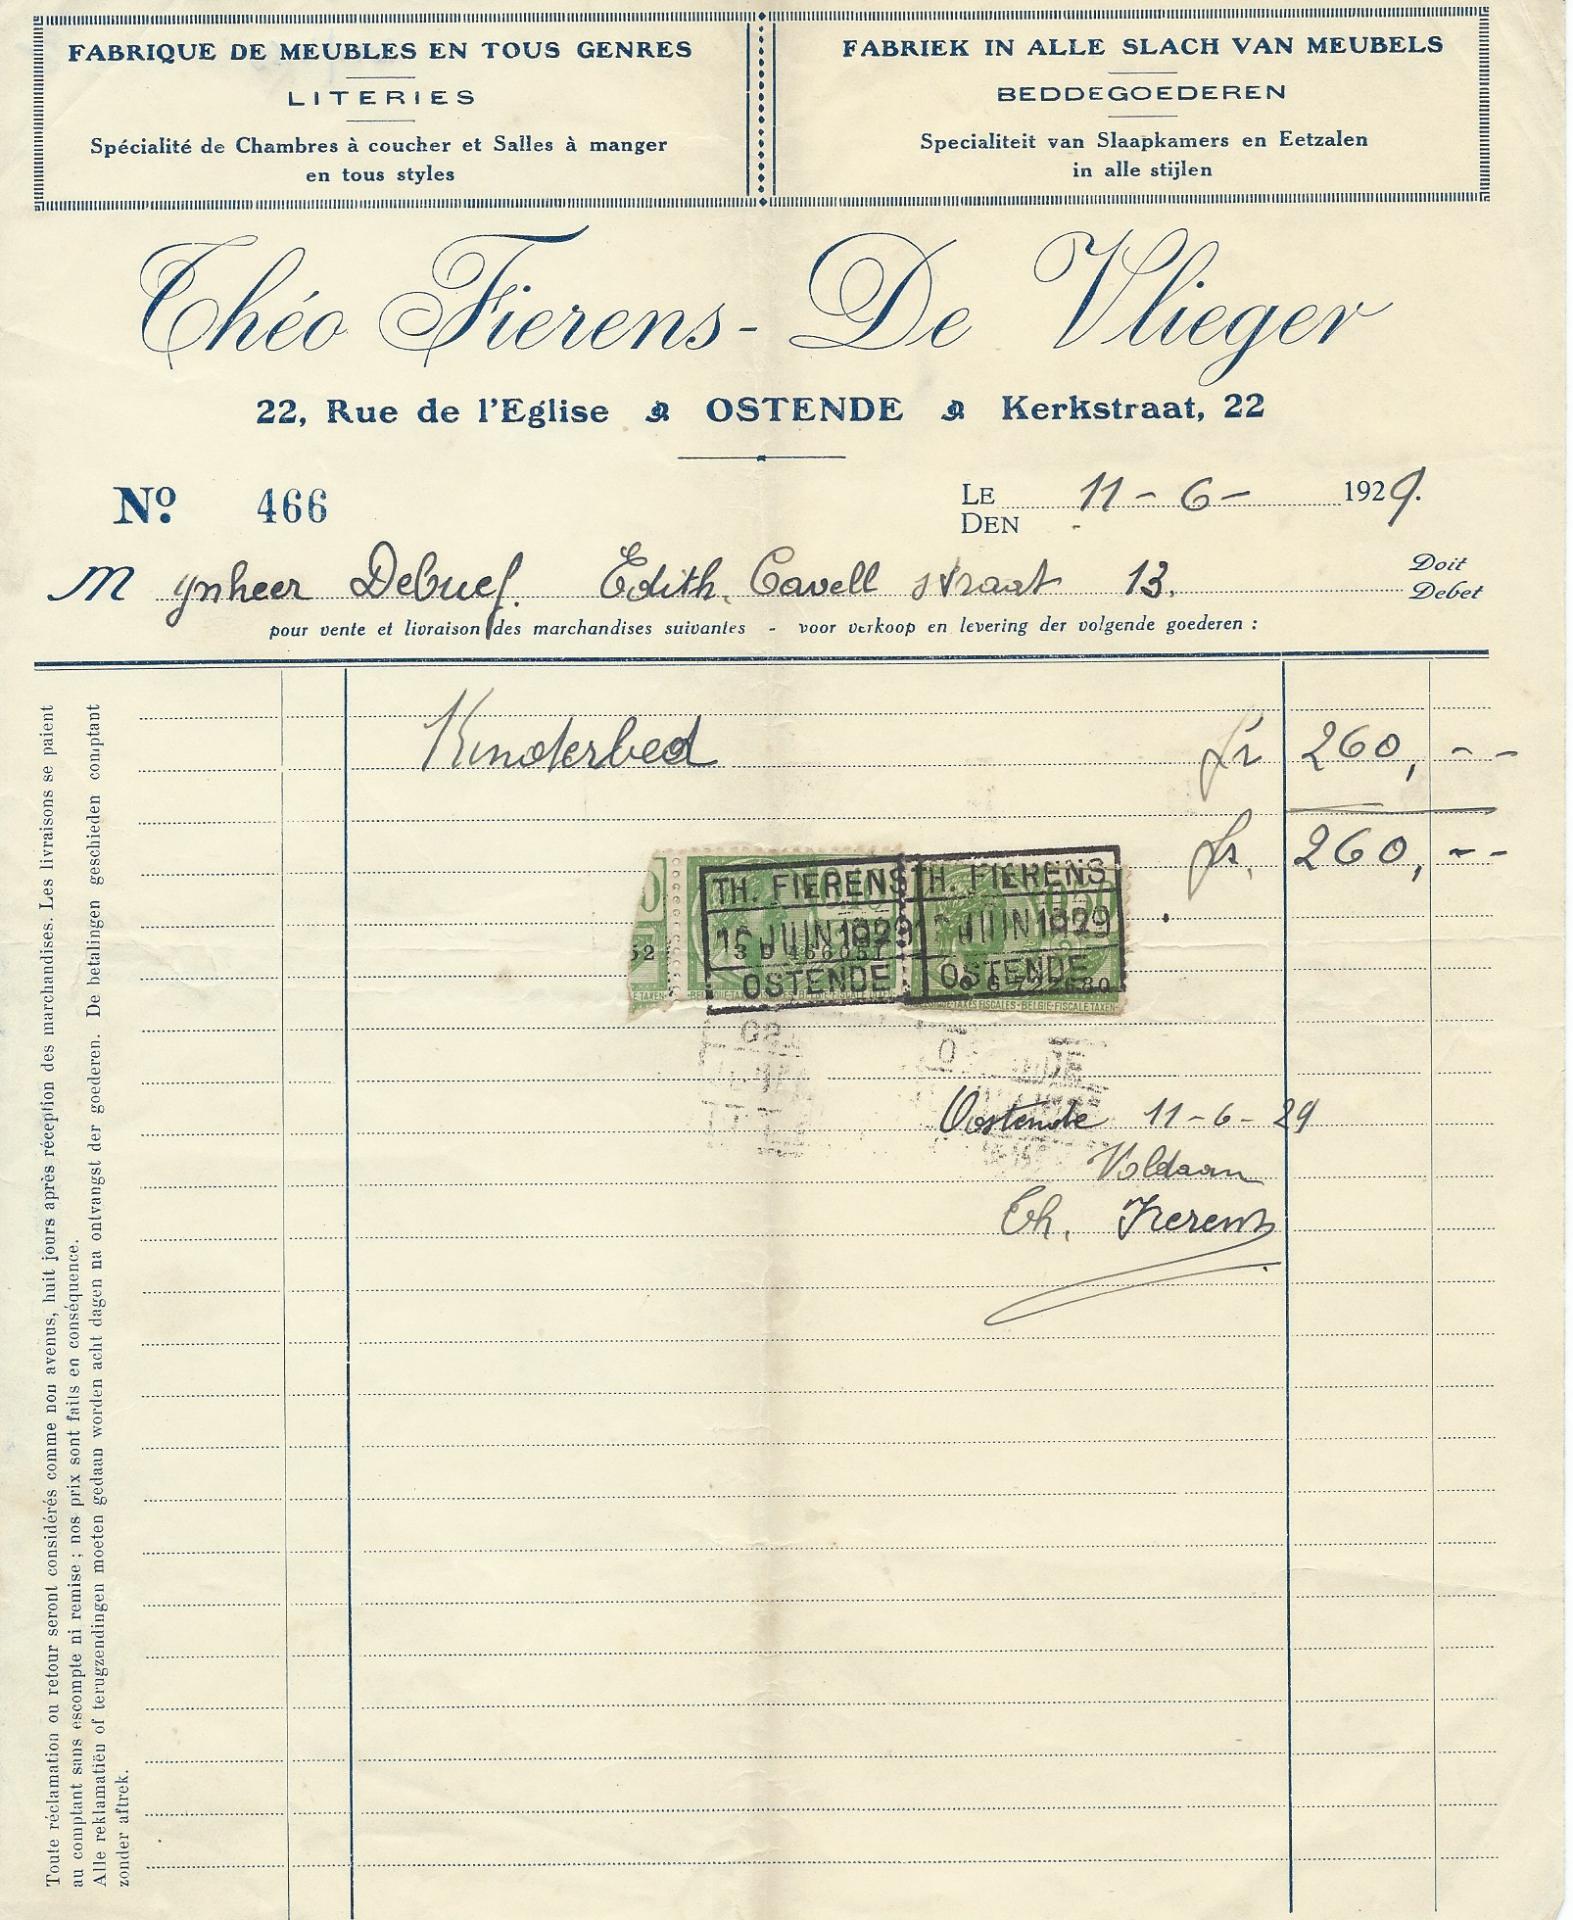 FABRIQUE DE MEUBLES EN TOUS GENRES
LITERIES
Spécialité de Chambres à coucher et Salles à manger
en tous styles
FABRIEK IN ALLE SLACH VAN MEUBELS
BEDDEGOEDEREN
Specialiteit van Slaapkamers en Eetzalen
in alle stijlen
Théo Fierens - De Vlieger
22, Rue de l'Eglise OSTENDE Kerkstraat, 22
No. 466
LE 11 - 6 - 1929.
DEN
Mynheer Debuef. Edith. Cavell straat 13.
Doit
Debet
pour vente et livraison des marchandises suivantes - voor verkoop en levering der volgende goederen :
Kinderbed fr 260, --
fr. 260, --
TH. FIERENS TH. FIERENS
JUIN 1929 JUIN 1929
OSTENDE OSTENDE
52
TAXES FISCALES - BELGIE - FISCALE TAXEN
Oostende 11 - 6 - 29
Voldaan
Th. Fierens
Toute réclamation ou retour seront considérés comme non avenus, huit jours après réception des marchandises. Les livraisons se paient
au comptant sans escompte ni remise ; nos prix sont faits en conséquence.
Alle reklamatiën of terugzendingen moeten gedaan worden acht dagen na ontvangst der goederen. De betalingen geschieden comptant
zonder aftrek.